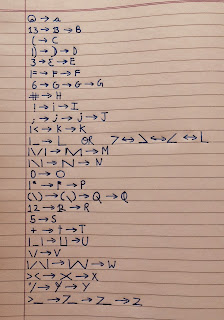 @ → a
13 → B → B
( → C
1) → ) → D
3 → Ɛ → E
1= → F → F
6 → G → G → G
# → H
1 → i → I
; → j → j → J
1< → k → K
1_ → L OR 7 ↔ > ↔ ∠ ↔ L
|\/| → M → M
|\| → N → N
0 → O
1° → P → P
(\) → (\) → Q → Q
12 → R → R
5 → S
+ → † → T
|_| → U → U
\/ → V
|/\/| → W → W
>< → X → X
'/ → Y → Y
>_ → Z → Z → Z